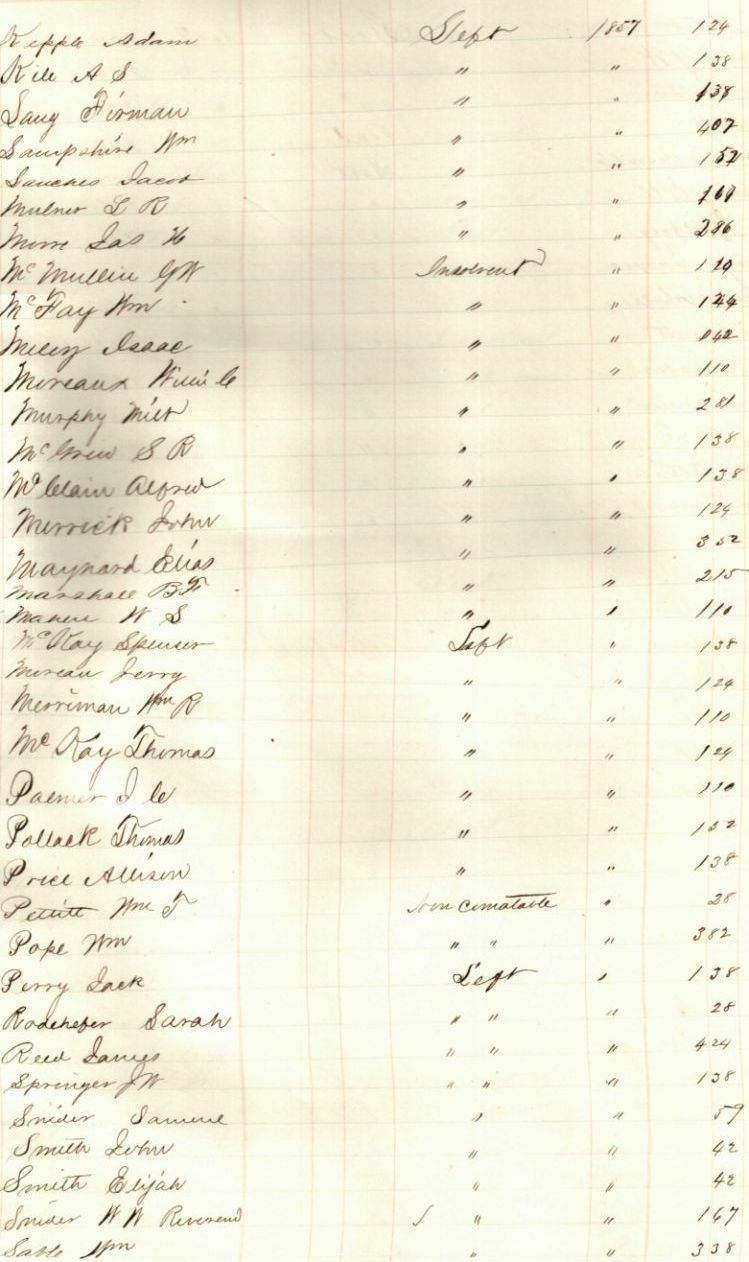 Kepple Adam Left 1857 124
Kile A S " " 138
Laug Firman " " 138
Lampshire Wm " " 407
Lanches Jacob " " 152
Mulner L R " "
Morre Jas H " " 286
McMullin G W Insolvent " 110
McFay Wm " " 124
Miley Isaac " "
Moreaux Willi C " " 110
Murphy Milt " " 281
McGrew S R " " 138
McClain Alfred " " 138
Merrick John " " 124
Maynard Elias " " 352
Marshall B F " " 215
W S " " 110
McKay Spenser Left " 138
Moreau Jerry " " 124
Merriman Wm R " " 110
McKay Thomas " " 124
Palmer J C " " 110
Pollack Thomas " " 152
Price Allison " " 138
Pettitt Wm F Non Comatable " 28
Pope Wm " " " 382
Perry Jack Left " 138
Rodehefer Sarah " " " 28
Reed James " " " 424
Springer J W " " " 138
Snider Samuel " " 59
Smith John " " 42
Smith Elijah " " 42
Snider W W Reverend " " 167
Sable Wm " " 338